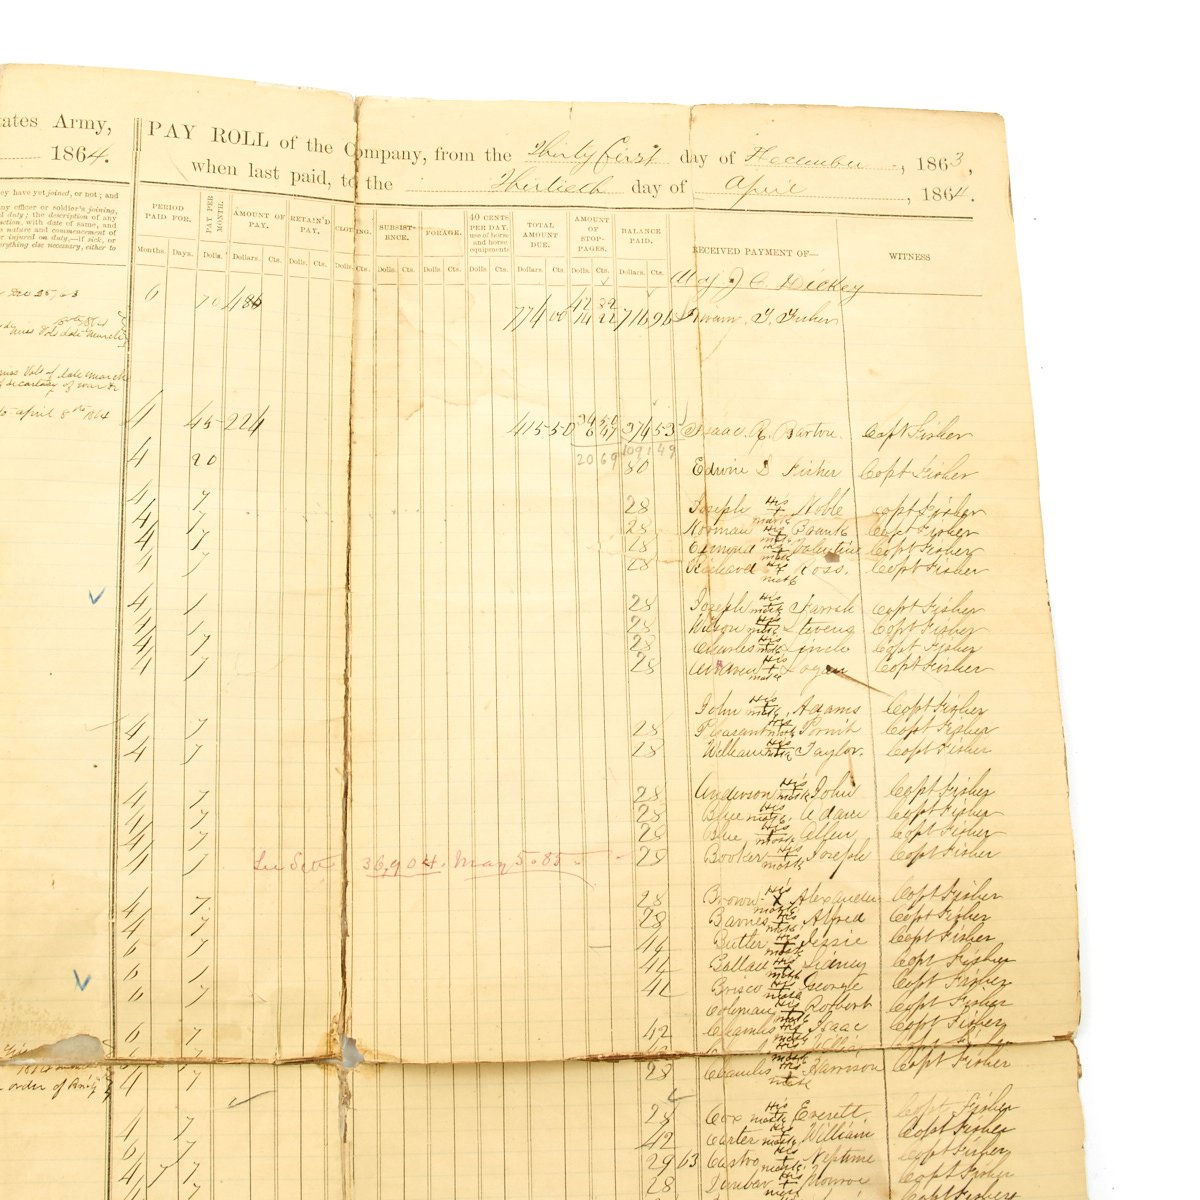 tates Army,
1864.
PAY ROLL of the Company, from the Thirty first day of December, 1863,
when last paid, to the Thirtieth day of April, 1864.
ey have yet joined, or not; and
ny officer or soldier's joining,
d duty; the description of any
action, with date of same, and
e nature and commencement of
r injured on duty,—if sick, or
erything else necessary, either to
PERIOD PAID FOR. PAY PER MONTH. AMOUNT OF PAY. RETAIN'D PAY. CLOTHING. SUBSISTENCE. FORAGE. 40 CENTS PER DAY, use of horse and horse equipments TOTAL AMOUNT DUE. AMOUNT OF STOPPAGES. BALANCE PAID. RECEIVED PAYMENT OF— WITNESS
Months. Days. Dolls. Dollars. Cts. Dolls. Cts. Dolls. Cts. Dolls. Cts. Dolls. Cts. Dolls. Cts. Dollars. Cts. Dolls. Cts. Dollars. Cts.
Maj J C Dickey
6 70 486 774 00 716 96 Hiram T. Fisher
to april 8th 1864 4 45 224 415 50 34 50 6 47 374 53 Isaac R. Barton Capt Fisher
20 69 1091 49
4 20 50 Edwin D Fisher Capt Fisher
4 7 28 Joseph His + mark Noble Capt Fisher
4 7 28 Norman His + mark Brank Capt Fisher
4 7 28 Edmond His + mark Valentine Capt Fisher
4 7 28 Richard His + mark Ross. Capt Fisher
4 7 28 Joseph His + mark Farrsh Capt Fisher
4 7 28 Wilson His + mark Stevens Capt Fisher
4 7 28 Charles His + mark Linch Capt Fisher
4 7 28 Andrew His + mark Logan Capt Fisher
John His + mark Adams Capt Fisher
4 7 28 Pleasant His + mark Capt Fisher
4 7 28 William His + mark Taylor. Capt Fisher
4 7 28 Anderson His + mark John Capt Fisher
4 7 28 Blue His + mark Adam Capt Fisher
4 7 28 Blue His + mark Allen Capt Fisher
4 7 28 Booker His + mark Joseph Capt Fisher
See Sett 36,904. May 5. 85
4 7 28 Brown His X mark Alexander Capt Fisher
4 7 28 Barnes His + mark Alfred Capt Fisher
6 7 42 Butler His + mark Jessie Capt Fisher
6 7 42 Ballad His + mark Sidney Capt Fisher
6 7 42 Brisco His + mark George Capt Fisher
Coleman His + mark Robbert Capt Fisher
6 7 42 Chamlis His + mark Isaac Capt Fisher
order of 4 7 28 Chamlis His + mark Harrison Capt Fisher
4 7 28 Cox His + mark Everett Capt Fisher
6 7 42 Carter His + mark William Capt Fisher
4 7 7 29 63 Castro His + mark Neptune Capt Fisher
4 7 28 Dunbar His + mark Monroe Capt Fisher